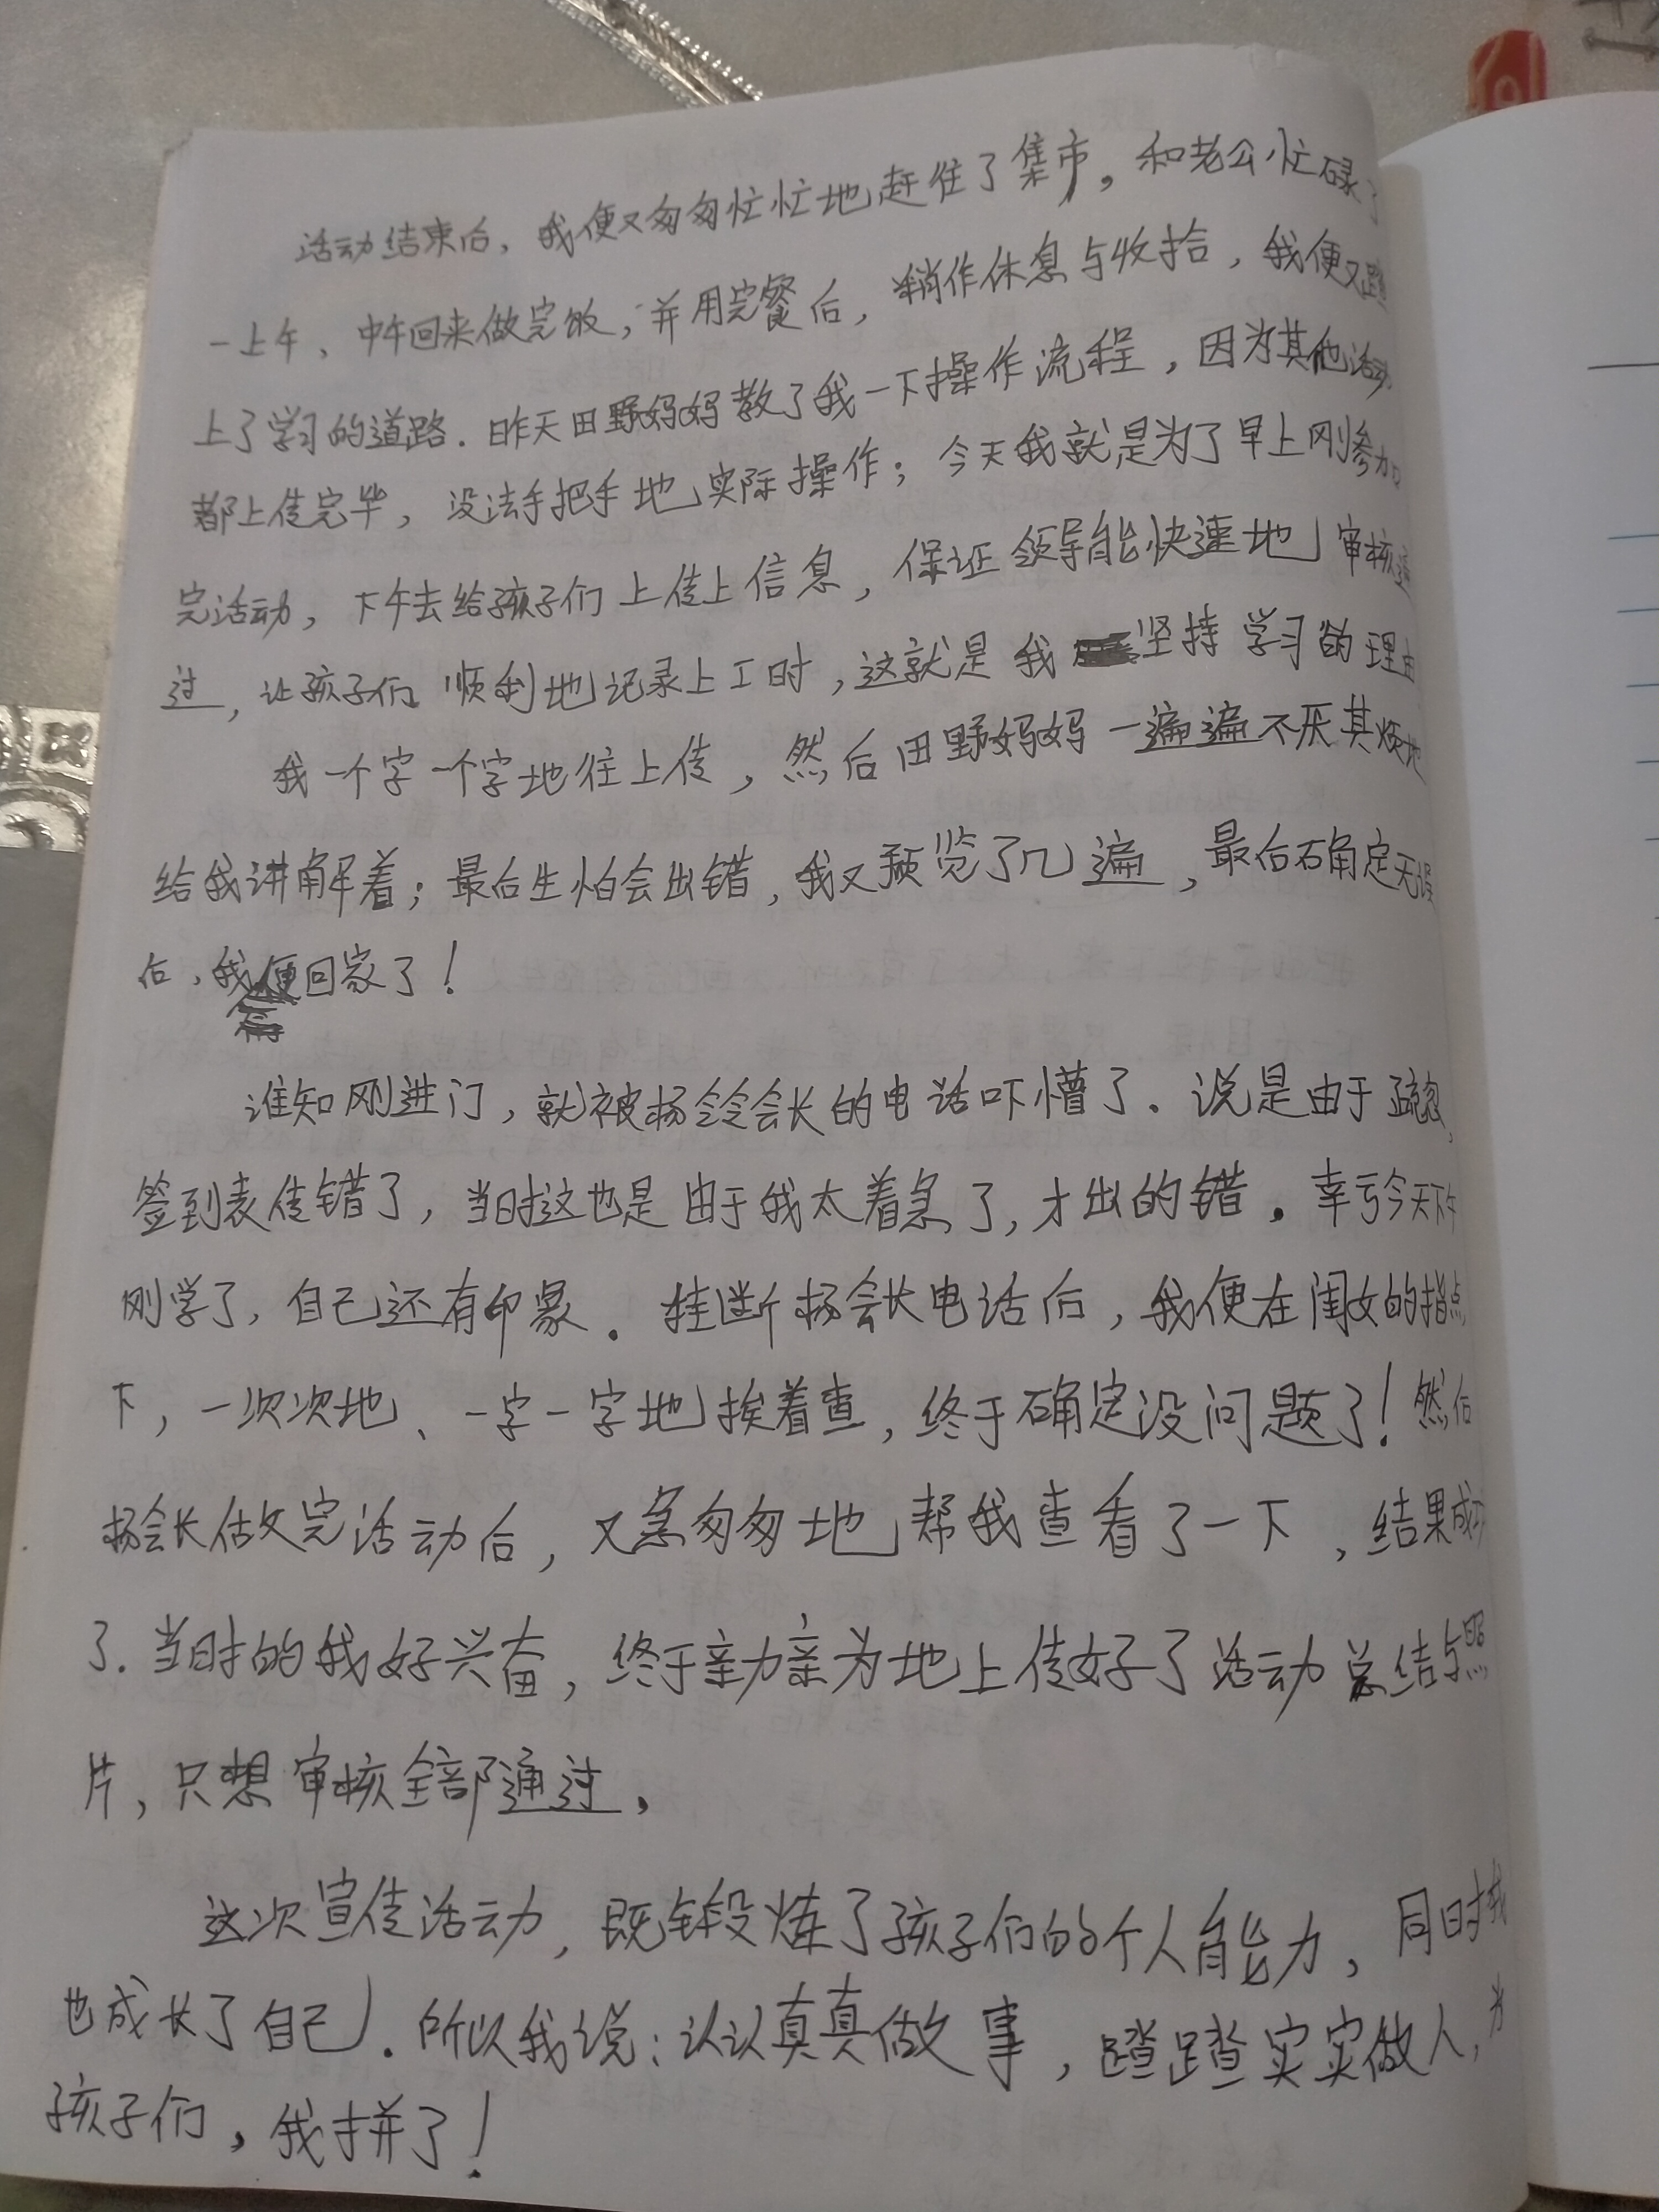 活动结束后，我便又匆匆忙忙地赶往了集市，和老公忙碌了
一上午、中午回来做完饭，并用完餐后，稍作休息与收拾，我便又踏
上了学习的道路．昨天田野妈妈教了我一下操作流程，因为其他活动
都上传完毕，没法手把手地实际操作；今天我就是为了早上刚参加
完活动，下午去给孩子们上传上信息，保证领导能快速地审核通
过，让孩子们顺利地记录上工时，这就是我坚持学习的理由
我一个字一个字地往上传，然后田野妈妈一遍遍不厌其烦地
给我讲解着；最后生怕会出错，我又预览了几遍，最后确定无误
后，我便回家了！
谁知刚进门，就被杨会长的电话吓懵了．说是由于疏忽，
签到表传错了，当时这也是由于我太着急了，才出的错。幸亏今天下午
刚学了，自己还有印象．挂断杨会长电话后，我便在闺女的指点
下，一次次地、一字一字地挨着查，终于确定没问题了！然后
杨会长做完活动后，又急匆匆地帮我查看了一下，结果成功
了．当时的我好兴奋，终于亲力亲为地上传好了活动总结与照
片，只想审核全部通过，
这次宣传活动，既锻炼了孩子们的个人能力，同时我
也成长了自己．所以我说：认认真真做事，踏踏实实做人，为
孩子们，我拼了！